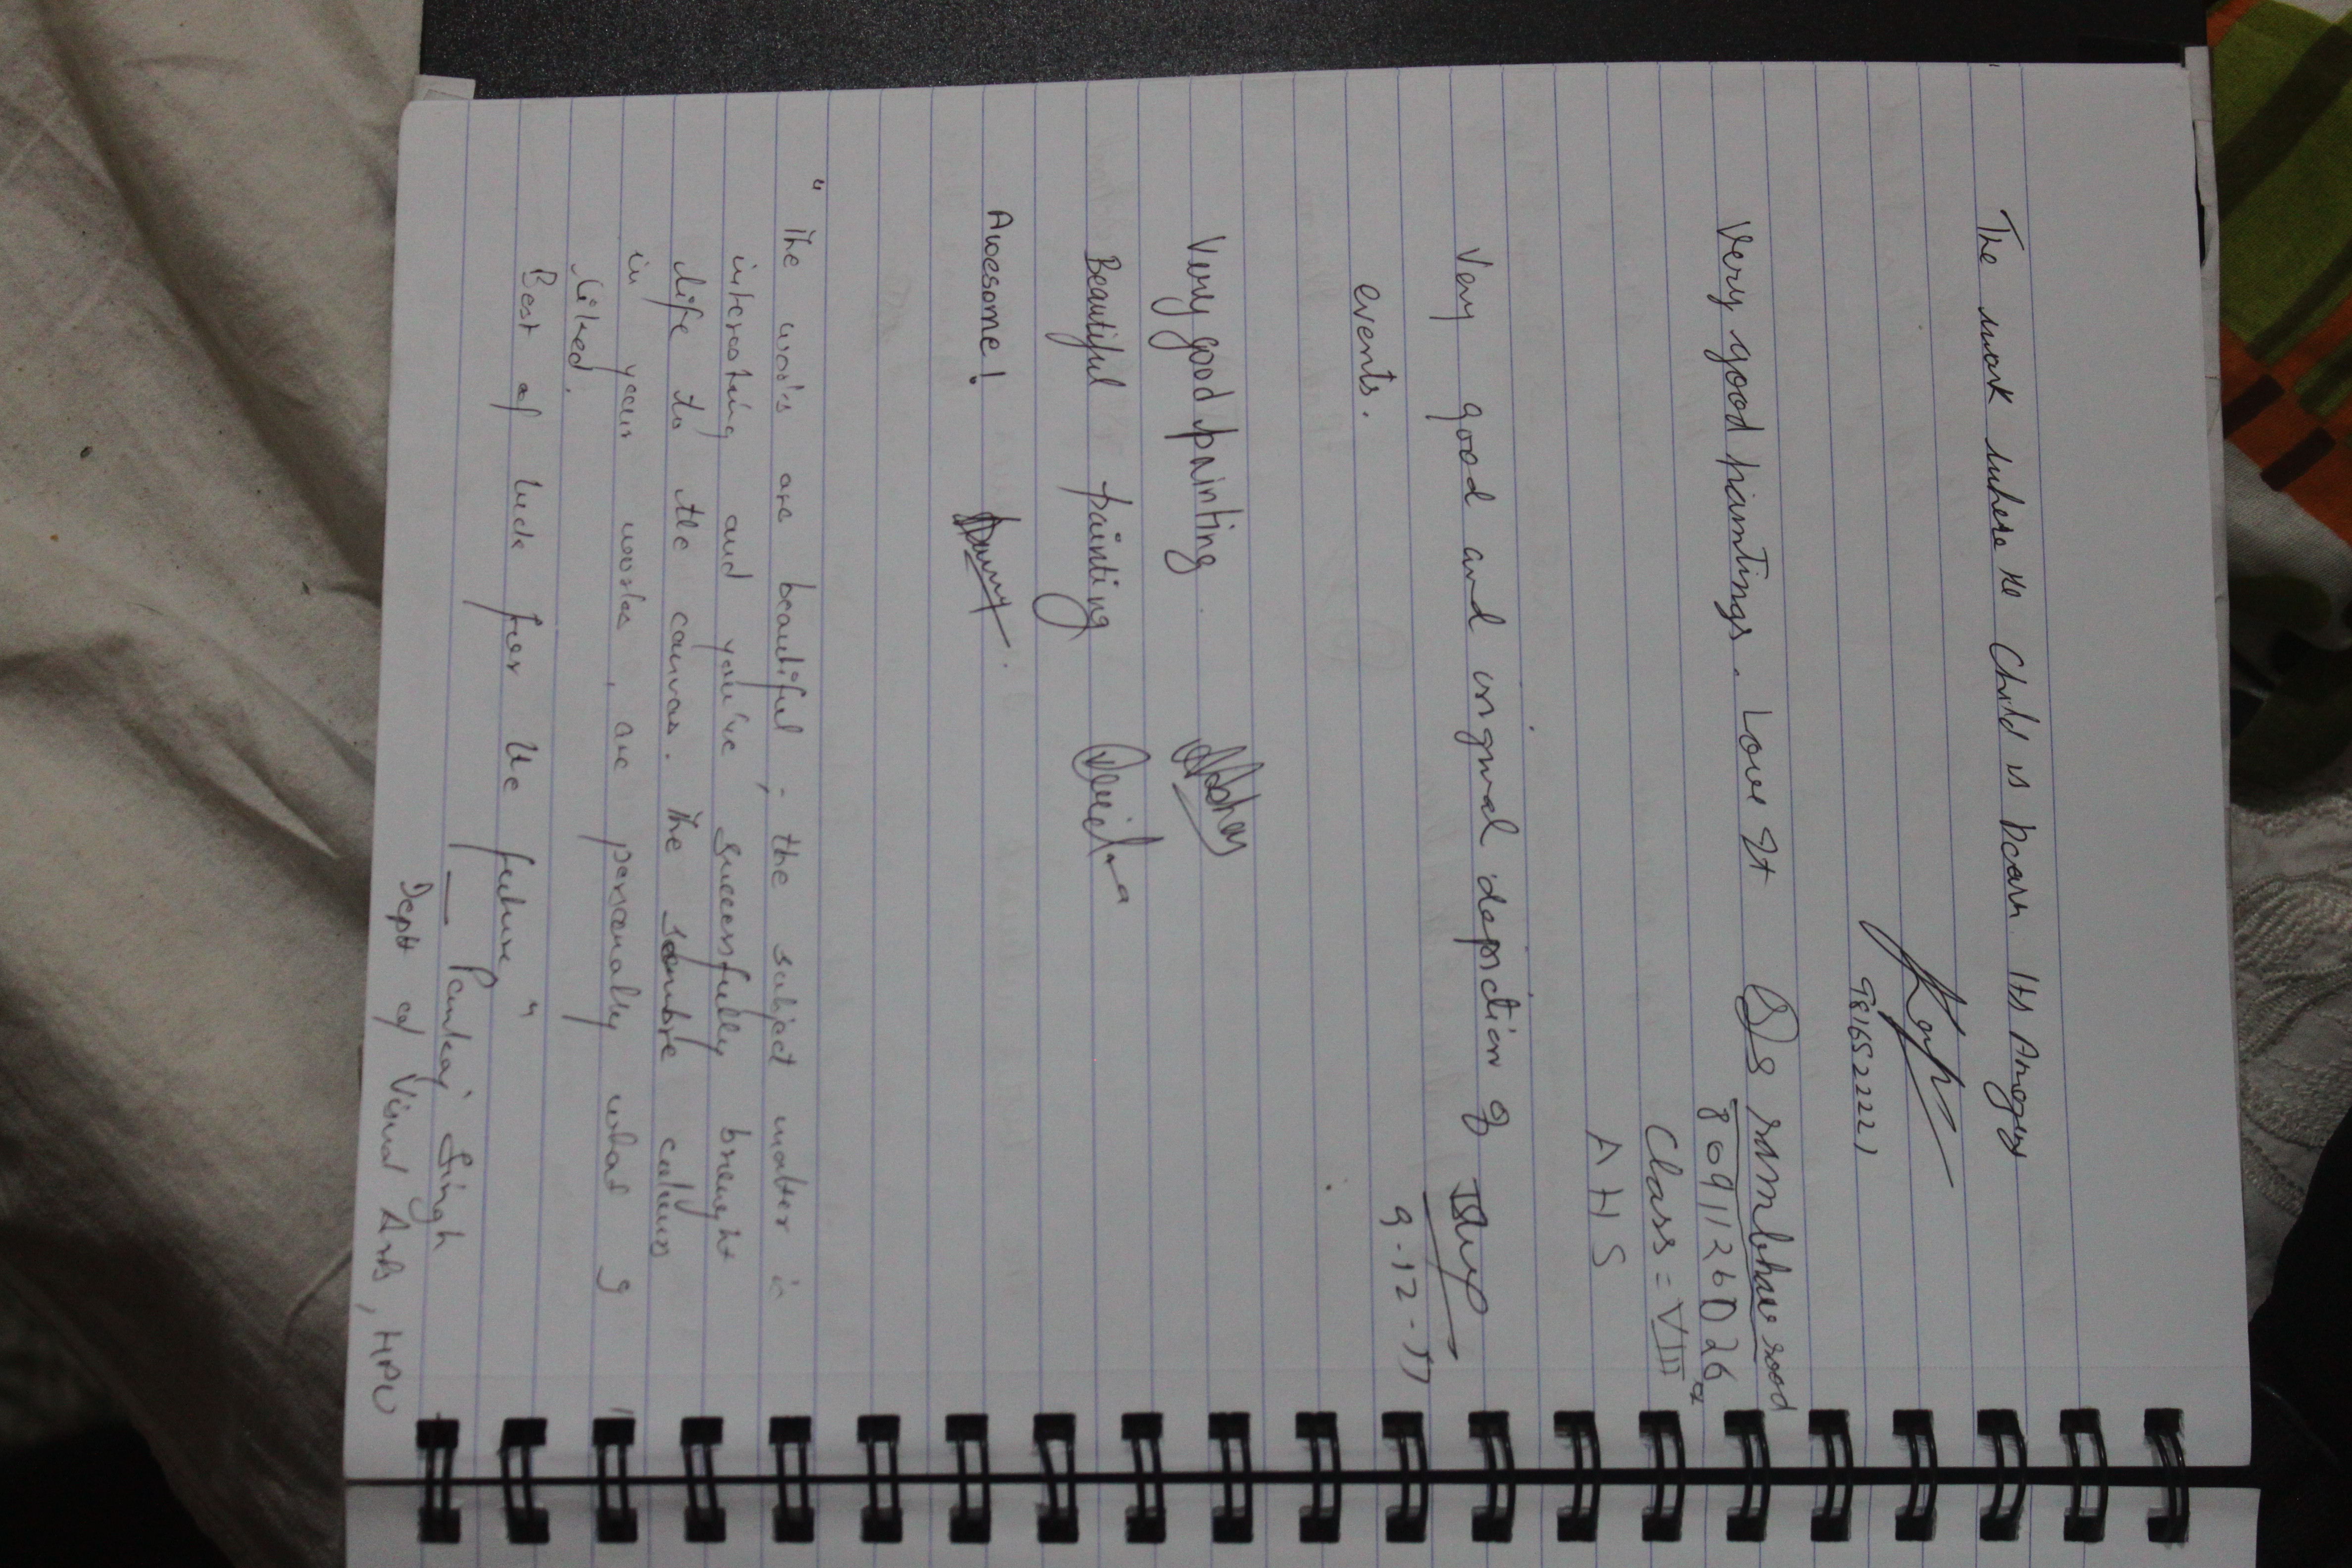 The work where the Child is born. Its Amazing
9816522221
Very good paintings. Love It
8091126026
Class = VIII
A H S
Very good and original depiction of
events.
9-12-17
Very good painting.
Beautiful painting
Awesome!
"The work's are beautiful, - the subject matter is
interesting and you've successfully brought
life to the canvas. The sombre colours
in your works, are personally what I
liked.
Best of luck for the future"
— Pankaj Singh
Deptt of Visual Arts, HPU